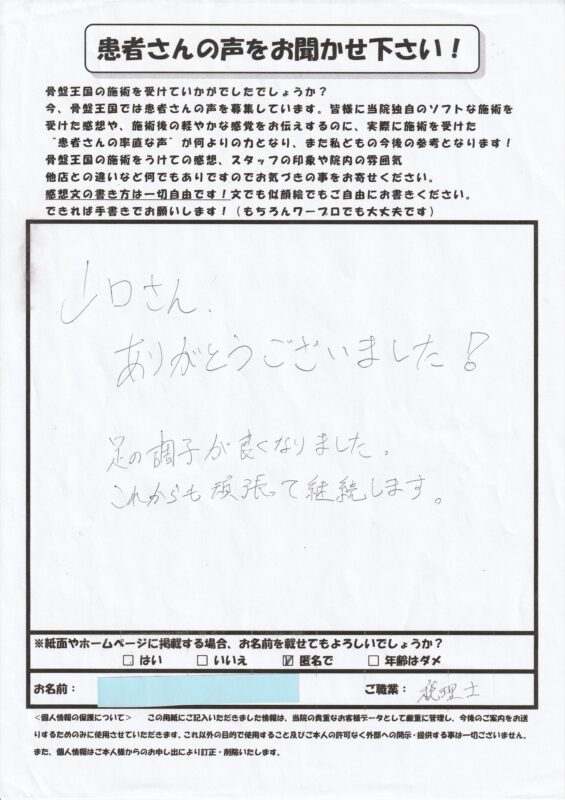 患者さんの声をお聞かせ下さい！
骨盤王国の施術を受けていかがでしたでしょうか？
今、骨盤王国では患者さんの声を募集しています。皆様に当院独自のソフトな施術を
受けた感想や、施術後の軽やかな感覚をお伝えするのに、実際に施術を受けた
"患者さんの率直な声"が何よりの力となり、また私どもの今後の参考となります！
骨盤王国の施術をうけての感想、スタッフの印象や院内の雰囲気
他店との違いなど何でもありですのでお気づきの事をお寄せください。
感想文の書き方は一切自由です！文でも似顔絵でもご自由にお書きください。
できれば手書きでお願いします！（もちろんワープロでも大丈夫です）
山口さん、
ありがとうございました！
足の調子が良くなりました。
これからも頑張って継続します。
※紙面やホームページに掲載する場合、お名前を載せてもよろしいでしょうか？
□ はい □ いいえ ☑ 匿名で □ 年齢はダメ
お名前： ご職業： 税理士
<個人情報の保護について> この用紙にご記入いただきました情報は、当院の貴重なお客様データとして厳重に管理し、今後のご案内をお送
りするためのみに使用させていただきます。これ以外の目的で使用すること及びご本人の許可なく外部への開示・提供する事は一切ございません。
また、個人情報はご本人様からのお申し出により訂正・削除いたします。